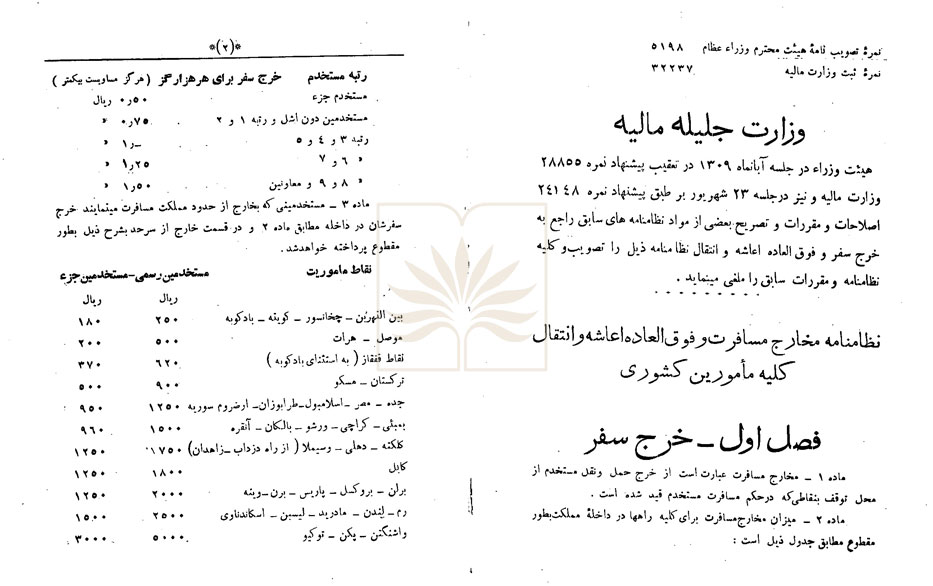 نمرهٔ تصویب نامهٔ هیئت محترم وزراء عظام ۵۱۹۸
نمرهٔ ثبت وزارت مالیه ۳۲۲۳۷
وزارت جلیله مالیه
هیئت وزراء در جلسه آبانماه ۱۳۰۹ در تعقیب پیشنهاد نمره ۲۸۸۵۵
وزارت مالیه و نیز درجلسه ۲۳ شهریور بر طبق پیشنهاد نمره ۲۴۱۴۸
اصلاحات و مقررات و تصریح بعضی از مواد نظامنامه های سابق راجع به
خرج سفر و فوق العاده اعاشه و انتقال نظامنامه ذیل را تصویب و کلیه
نظامنامه و مقررات سابق را ملغی مینماید .
نظامنامه مخارج مسافرت و فوق العاده اعاشه و انتقال
کلیه مأمورین کشوری
فصل اول ــ خرج سفر
ماده ۱ ــ مخارج مسافرت عبارت است از خرج حمل ونقل مستخدم از
محل توقف بنقاطی که درحکم مسافرت مستخدم قید شده است .
ماده ۲ ــ میزان مخارج مسافرت برای کلیه راهها در داخلهٔ مملکت بطور
مقطوع مطابق جدول ذیل است :
*(۲)*
رتبه مستخدم خرج سفر برای هر هزار گز ( هر گز مساویست بیکمتر )
مستخدم جزء ۰٫۵۰ ریال
مستخدمین دون اشل و رتبه ۱ و ۲ ۰٫۷۵ «
رتبه ۳ و ۴ و ۵ ۱٫ــ «
« ۶ و ۷ ۱٫۲۵ «
« ۸ و ۹ و معاونین ۱٫۵۰ «
ماده ۳ ــ مستخدمینی که بخارج از حدود مملکت مسافرت مینمایند خرج
سفرشان در داخله مطابق ماده ۲ و در قسمت خارج از سرحد بشرح ذیل بطور
مقطوع پرداخته خواهدشد.
نقاط ماموریت مستخدمین رسمی ــ مستخدمین جزء
ریال ریال
بین النهرین ــ چخانسور ــ کویته ــ بادکوبه ۲۵۰ ۱۸۰
موصل ــ هرات ۵۰۰ ۲۰۰
نقاط قفقاز ( به استثنای بادکوبه ) ۶۲۰ ۳۷۰
ترکستان ــ مسکو ۹۰۰ ۵۰۰
جده ــ مصر ــ اسلامبول ــ طرابوزان ــ ارضروم سوریه ۱۲۵۰ ۹۵۰
بمبئی ــ کراچی ــ ورشو ــ بالکان ــ آنقره ۱۵۰۰ ۹۶۰
کلکته ــ دهلی ــ وسیملا ( از راه دزداب ــ زاهدان) ۱۷۵۰ ۱۲۵۰
کابل ۱۸۰۰ ۱۲۵۰
برلن ــ بروکسل ــ پاریس ــ برن ــ وینه ۲۰۰۰ ۱۲۵۰
رم ــ لندن ــ مادرید ــ لیسبن ــ اسکاندناوی ۲۵۰۰ ۱۵۰۰
واشنگتن ــ پکن ــ توکیو ۵۰۰۰ ۳۰۰۰